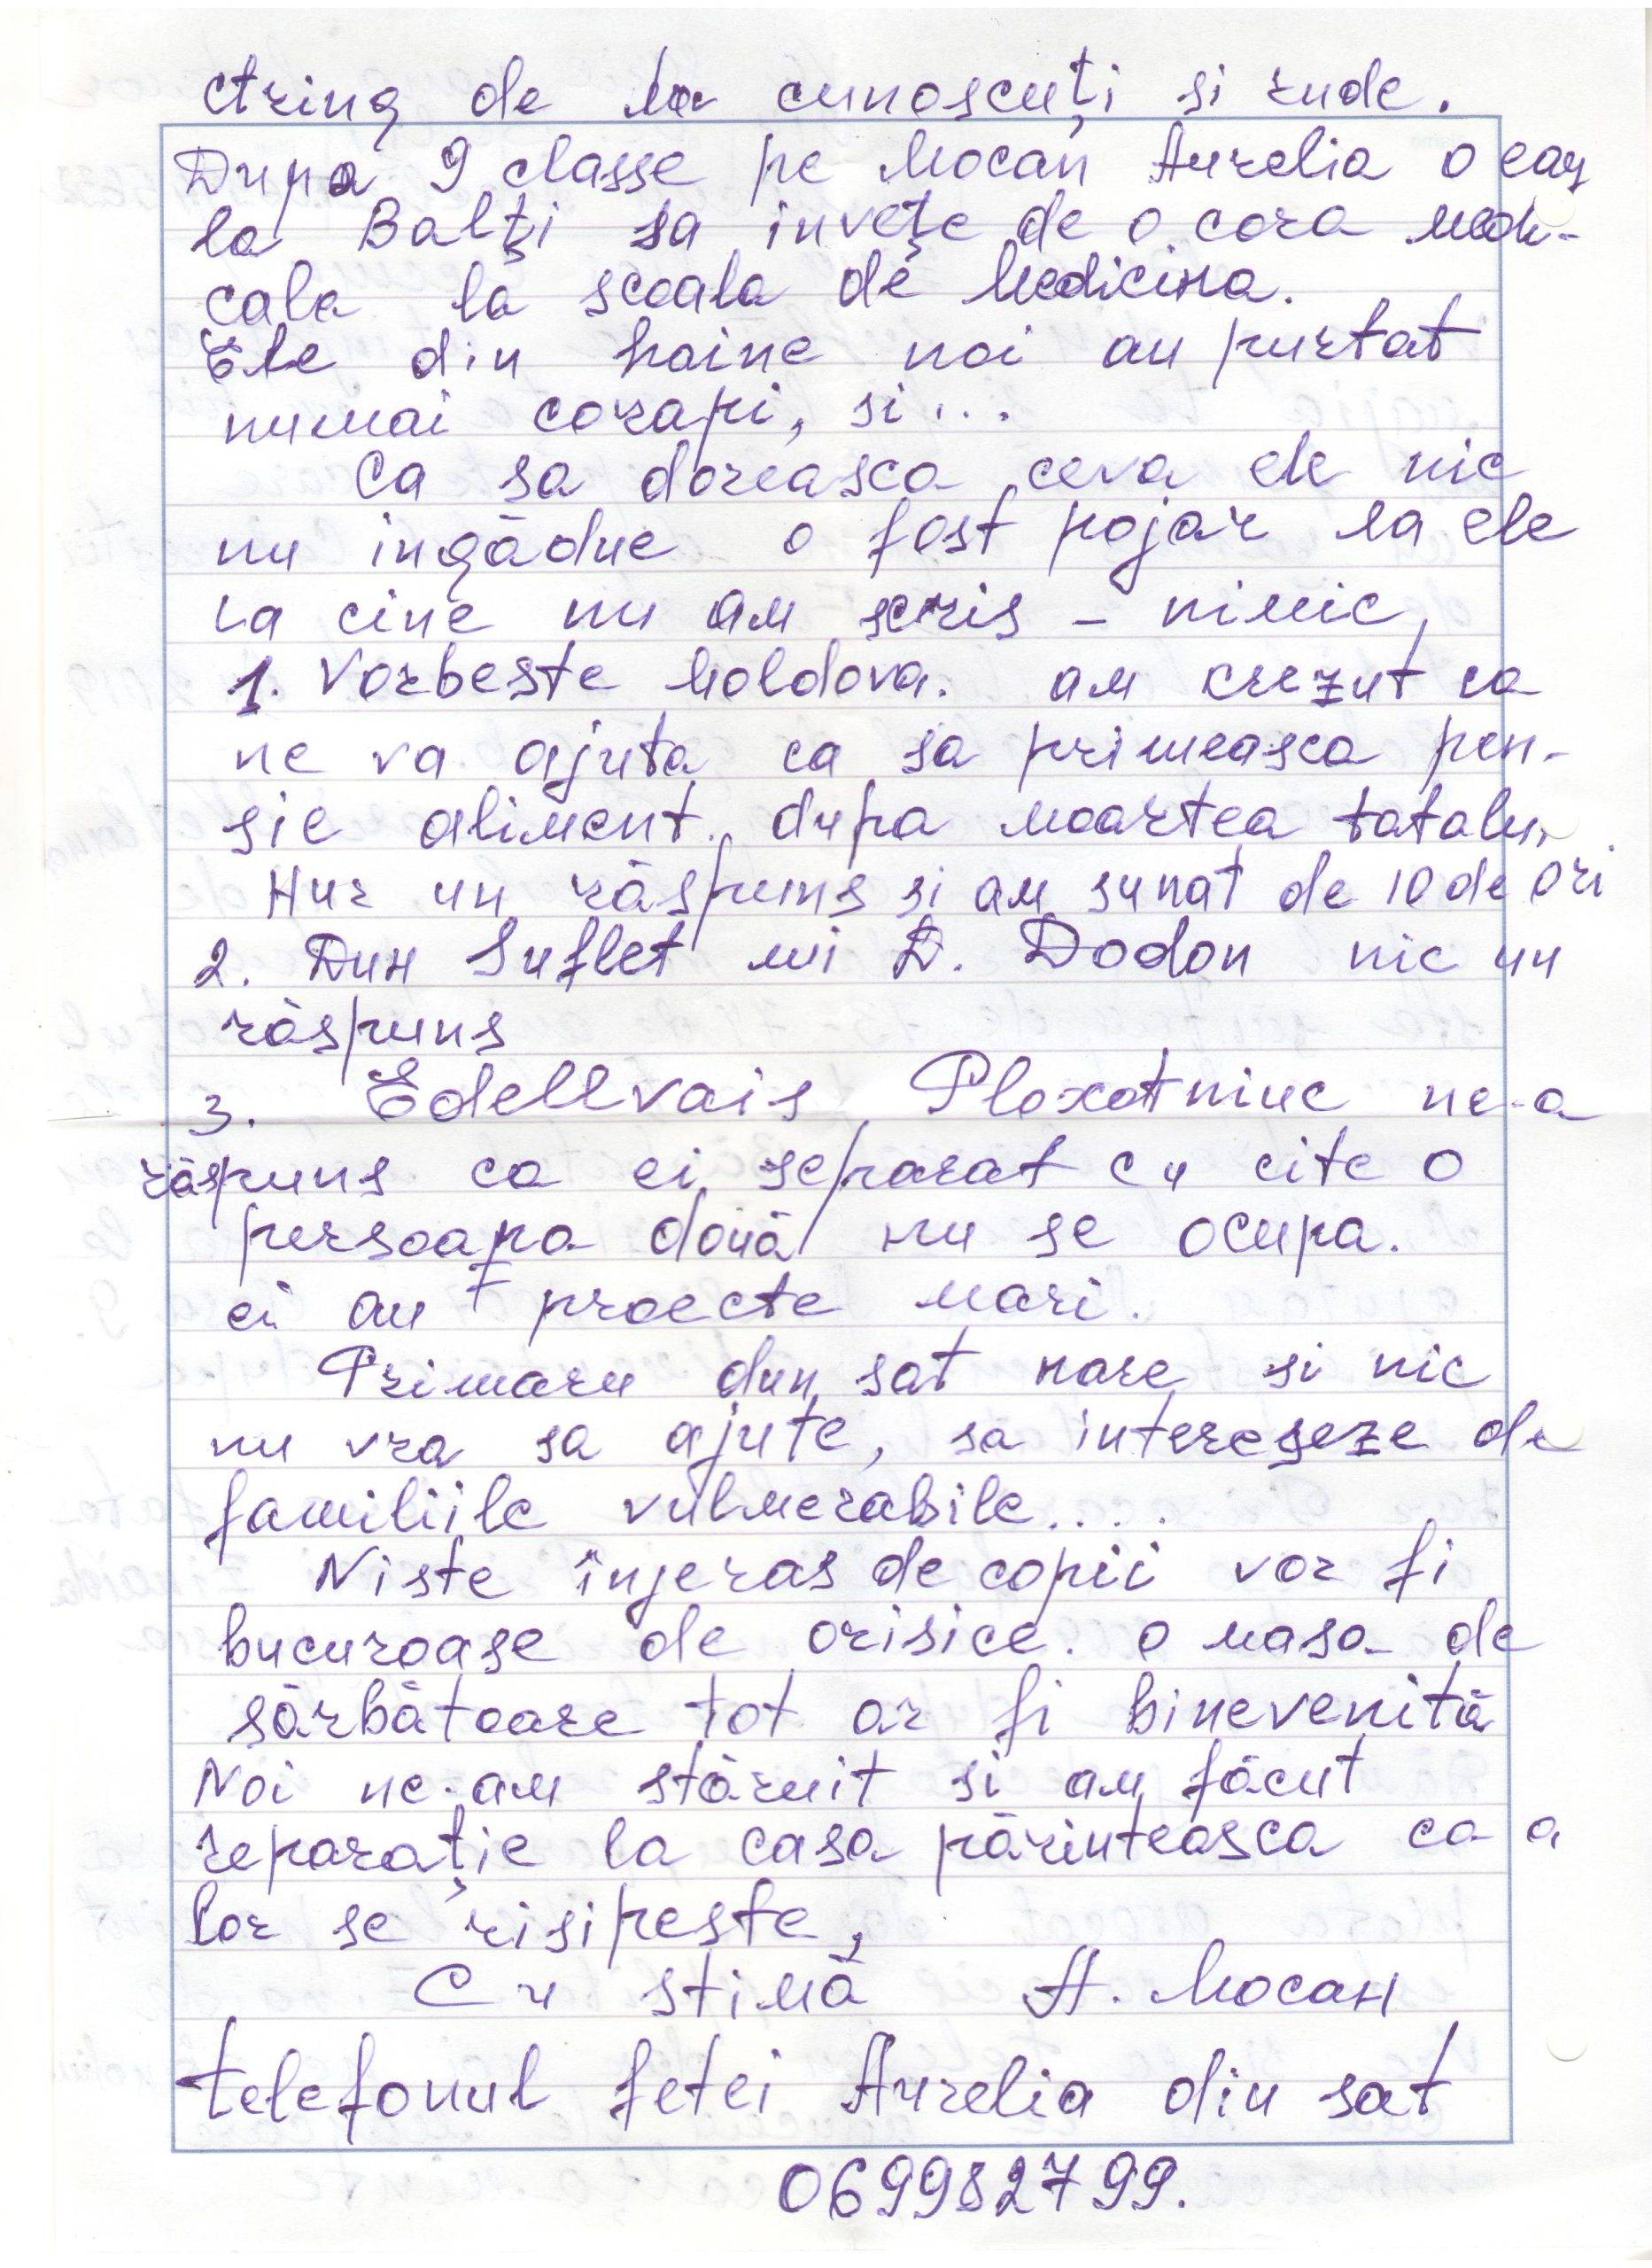 string de la cunoscuți si rude.
Dupa 9 classe pe Mocan Aurelia o eau
la Balți sa invețe de o cora medi-
cala la scoala de Medicina.
Ele din haine noi au purtat
numai corapi, si...
Ca sa doreasca ceva ele nic
nu ingădue o fost pojar la ele
La cine nu am scris - nimic,
1. Vorbeste Moldova. am crezut ca
ne va ajuta ca sa primeasca pen-
sie aliment. dupa moartea tatalui
Nur un răspuns si am sunat de 10 de ori
2. Din Suflet mi D. Dodon nic un
răspuns
3. Edellvais Ploxotniuc ne-a
răspuns ca ei separat cu cite o
persoana două nu se ocupa.
ei au proecte mari.
Primaru dun sat nare si nic
nu vra sa ajute, sa intereseze de
familiile vulnerabile....
Niste înjeras de copii vor fi
bucuroase de orisice. o masa de
sărbătoare tot ar fi binevenită
Noi ne-am stăruit si am făcut
reparație la casa părinteasca ca a
lor se risipeste,
Cu stimă A. Mocan
telefonul fetei Aurelia din sat
069982799.